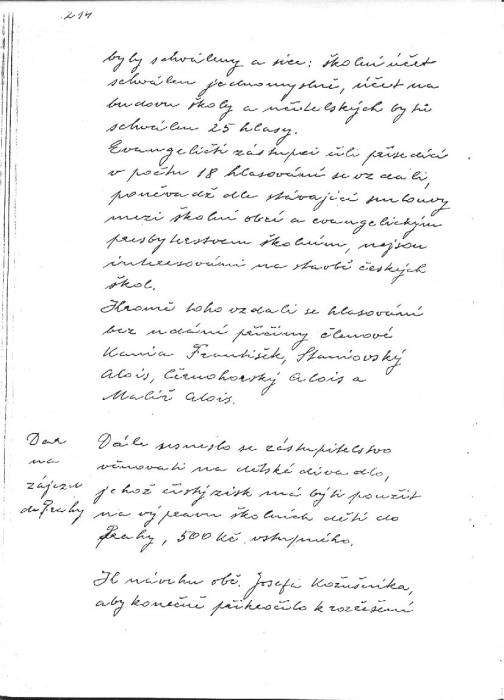 214
byly schváleny a sice: školní účet
schválen jednomyslně, účet na
budovu školy a učitelských bytů
schválen 25 hlasy.
Evangeličtí zástupci čili přísedící
v počtu 18 hlasování se vzdali,
poněvadž dle stávající smlouvy
mezi školní obcí a evangelickým
presbyterstvem školním, nejsou
interesováni na stavbě českých
škol.
Kromě toho vzdali se hlasování
bez udání příčiny členové
Kania František, Staniovský
Alois, Černohorský Alois a
Malíř Alois.
Dar
na
zájezd
do Prahy
Dále usneslo se zástupitelstvo
věnovati na dětské divadlo,
jehož čistý zisk má býti použit
na výpravu školních dětí do
Prahy, 500 Kč vstupného.
K návrhu obč. Josefa Kožušníka,
aby konečně přikročilo k rozřešení